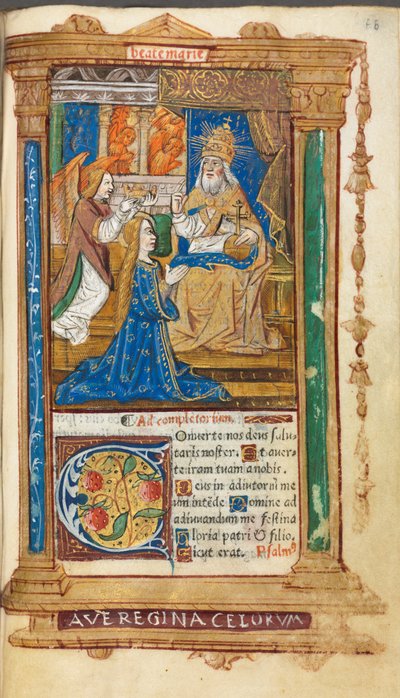 beate marie
Ad completorium
Onuerte nos deus salu
taris noster. Et auer-
te iram tuam a nobis.
Deus in adiutoriũ me
um intẽde Domine ad
adiuuandum me festina
Gloria patri & filio.
Sicut erat. Psalmꝰ
AVE REGINA CELORVM